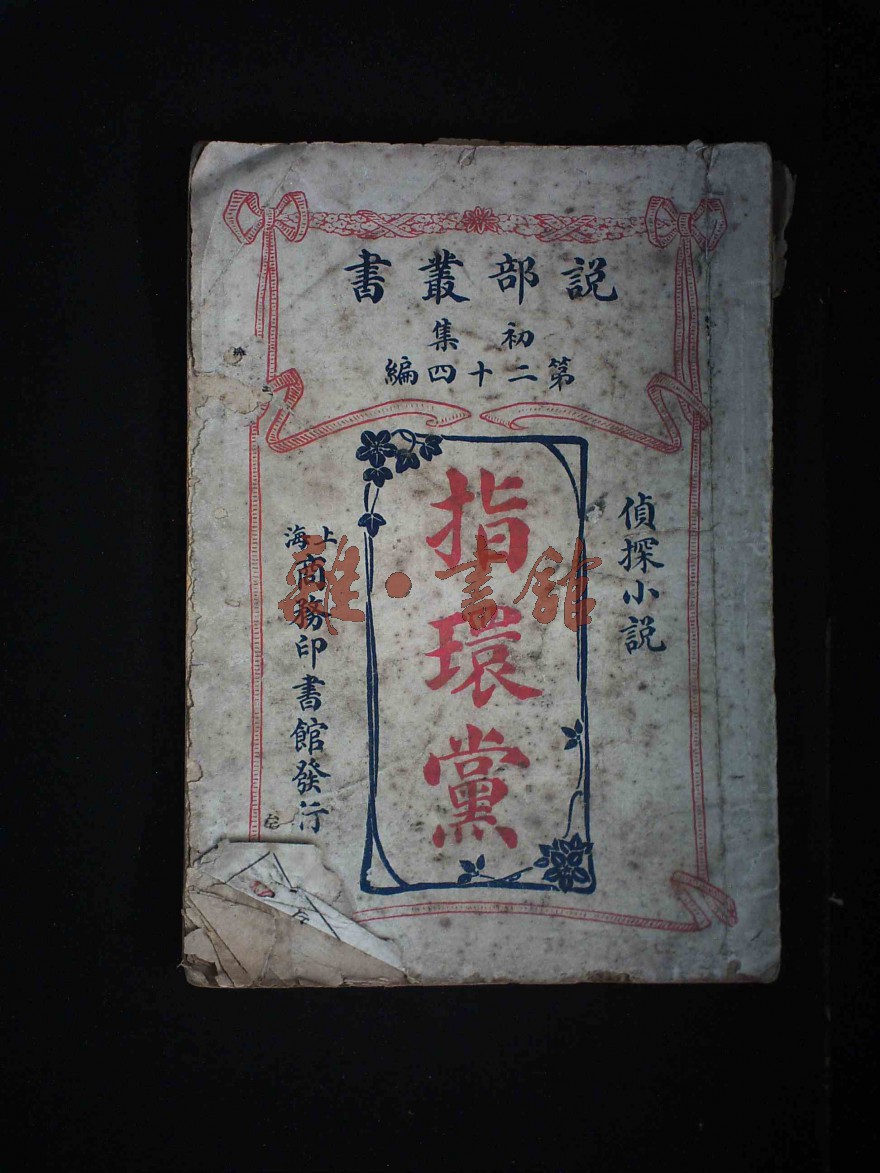 説部叢書
初集
第二十四編
偵探小説
指環黨
上海
商務印書館發行
雜·書館